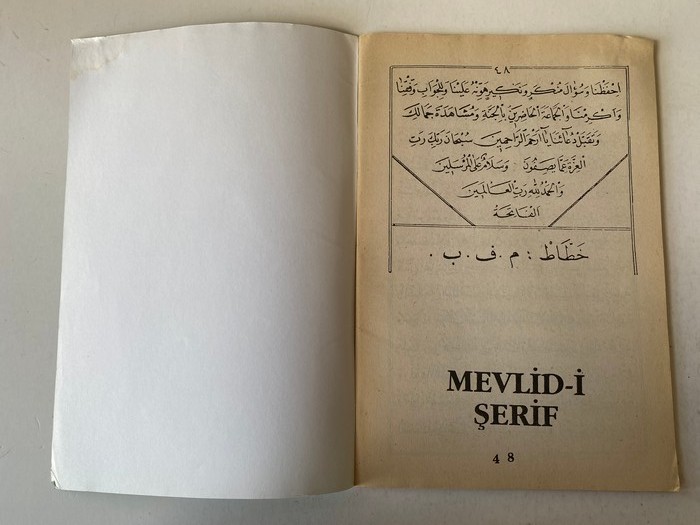 ٤٨
احْفَظْنَا وَسُؤَالَ مُنْكَرٍ وَنَكِيرٍ هَوِّنْهُ عَلَيْنَا وَلِلْجَوَابِ وَفِّقْنَا
وَاَكْرِمْنَا وَالْجَمَاعَةَ الْحَاضِرِينَ بِالْجَنَّةِ وَمُشَاهَدَةِ جَمَالِكَ
وَتَقَبَّلْ دُعَائَنَا يَا اَرْحَمَ الرَّاحِمِينَ سُبْحَانَ رَبِّكَ رَبِّ
الْعِزَّةِ عَمَّا يَصِفُونَ وَسَلَامٌ عَلَى الْمُرْسَلِينَ
وَالْحَمْدُ لِلّٰهِ رَبِّ الْعَالَمِينَ
الْفَاتِحَة
خَطَّاطْ : م . ف . ب .
MEVLİD-İ
ŞERİF
48